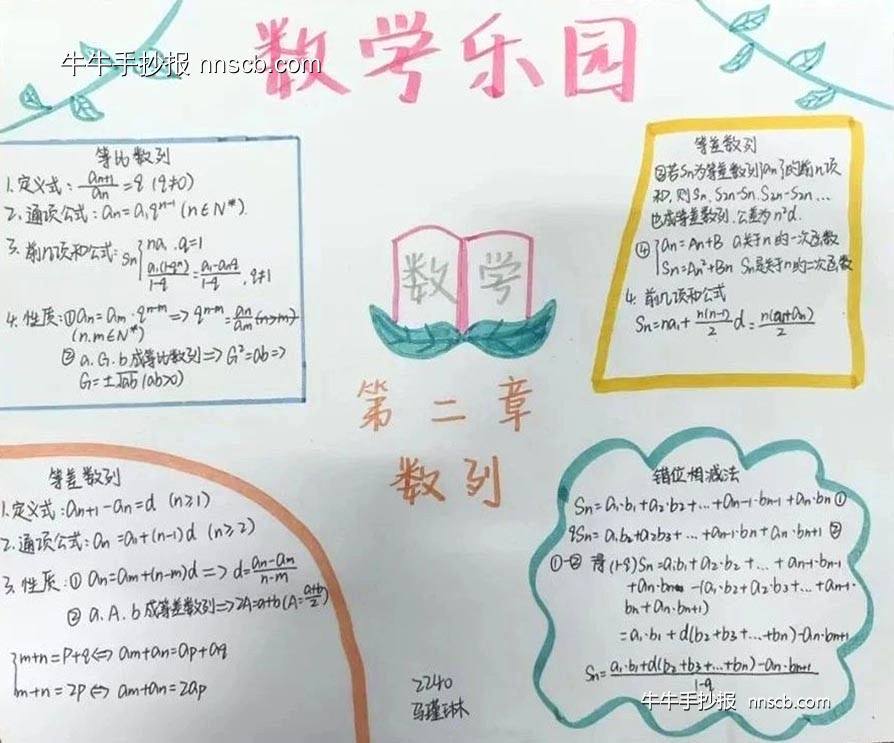 数学乐园
牛牛手抄报 nnscb.com
等比数列
1.定义式：aₙ₊₁/aₙ=q (q≠0)
2.通项公式：aₙ=a₁qⁿ⁻¹ (n∈N*).
3.前几项和公式：Sₙ{na₁ q=1
a₁(1-qⁿ)/1-q=a₁-aₙq/1-q, q≠1
4.性质：①aₙ=aₘ·qⁿ⁻ᵐ=>qⁿ⁻ᵐ=aₙ/aₘ(n>m)
(n.m∈N*)
②a.G.b成等比数列=>G²=ab=>
G=±√ab (ab>0)
等差数列
③若Sₙ为等差数列{aₙ}的前n项
和,则Sₙ.S₂ₙ-Sₙ.S₂ₙ-S₂ₙ...
也成等差数列.公差为n²d.
④{aₙ=An+B a关于n的一次函数
Sₙ=An²+Bn Sₙ是关于n的二次函数
4.前几项和公式
Sₙ=na₁+n(n-1)/2 d=n(a₁+aₙ)/2
数学
第二章
数列
等差数列
1.定义式：aₙ₊₁-aₙ=d (n≥1)
2.通项公式：aₙ=a₁+(n-1)d (n≥2)
3.性质：①aₙ=aₘ+(n-m)d=>d=aₙ-aₘ/n-m
②a.A.b成等差数列=>2A=a+b(A=a+b/2)
{m+n=P+q<=>aₘ+aₙ=aₚ+a_q
m+n=2P<=>aₘ+aₙ=2aₚ
错位相减法
Sₙ=a₁·b₁+a₂·b₂+...+aₙ₋₁·bₙ₋₁+aₙ·bₙ ①
qSₙ=a₁b₂+a₂b₃+...+aₙ₋₁·bₙ+aₙ·bₙ₊₁ ②
①-② 得(1-q)Sₙ=a₁b₁+a₂·b₂+...+aₙ₋₁·bₙ₋₁
+aₙ·bₙ -(a₁·b₂+a₂·b₃+...+aₙ₋₁·
bₙ+aₙ·bₙ₊₁)
=a₁·b₁+d(b₂+b₃+...+bₙ)-aₙ·bₙ₊₁
Sₙ=a₁·b₁+d(b₂+b₃+...+bₙ)-aₙ·bₙ₊₁/1-q
2240
马瑾琳
牛牛手抄报 nnscb.com